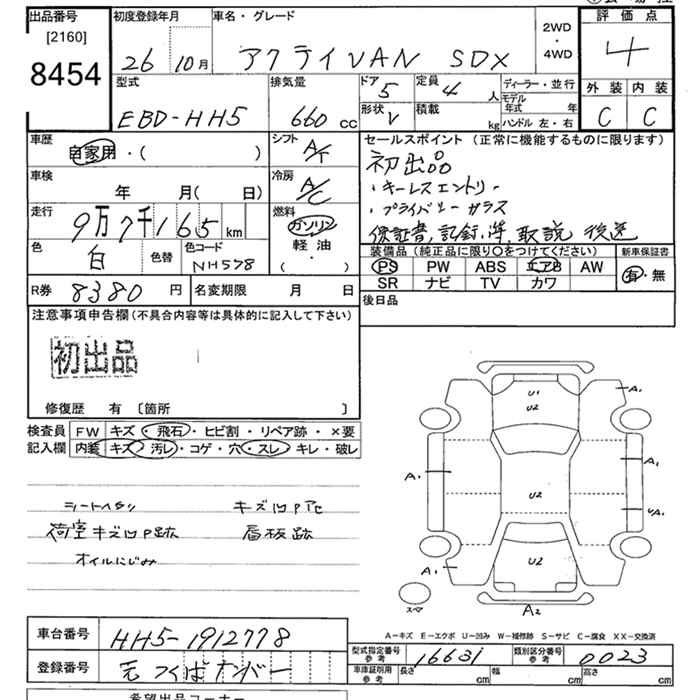 出品番号 初度登録年月 車名・グレード 2WD・4WD 評価点
[2160]
8454 26 10月 アクティVAN SDX 4
型式 排気量 ドア 5 定員 4 人 ディーラー・並行 外装 内装
EBD-HH5 660 cc 形状 V 積載 kg モデル年式 年 C C
ハンドル 左・右
車歴 自家用・( ) シフト A/T セールスポイント (正常に機能するものに限ります)
初出品
車検 年 月( 日) 冷房 A/C ・キーレスエントリー
・プライバシーガラス
走行 9万7千165 km 燃料 ガソリン 軽油 ( ) 保証書,記録簿,取説 後送
色 白 色替 色コード NH578 装備品 (純正品に限り○をつけてください) 新車保証書
PS PW ABS エアB AW 有・無
SR ナビ TV カワ
R券 8380 円 名変期限 月 日 後日品
注意事項申告欄 (不具合内容等は具体的に記入して下さい)
初出品
修復歴 有 [箇所 ]
検査員 FW キズ・飛石・ヒビ割・リペア跡・×要
記入欄 内装 キズ・汚レ・コゲ・穴・スレ・キレ・破レ
シートヘタリ キズ凹P化
荷室キズ凹P跡 看板跡
オイルにじみ
U1
U2
A1
A1
U2
UA1
U2
A1
スマ
A2
A-キズ E-エクボ U-凹み W-補修跡 S-サビ C-腐食 XX-交換済
車台番号 HH5-1912778
型式指定番号 参考 16631 類別区分番号 参考 0023
登録番号 元つくばナンバー 車庫証明用 参考 長さ cm 幅 cm 高さ cm
希望出品コーナー